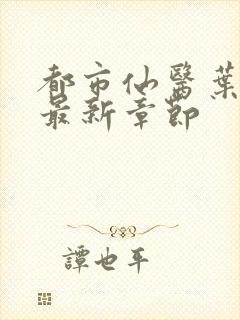 都市仙醫葉
最新章節
譚也平